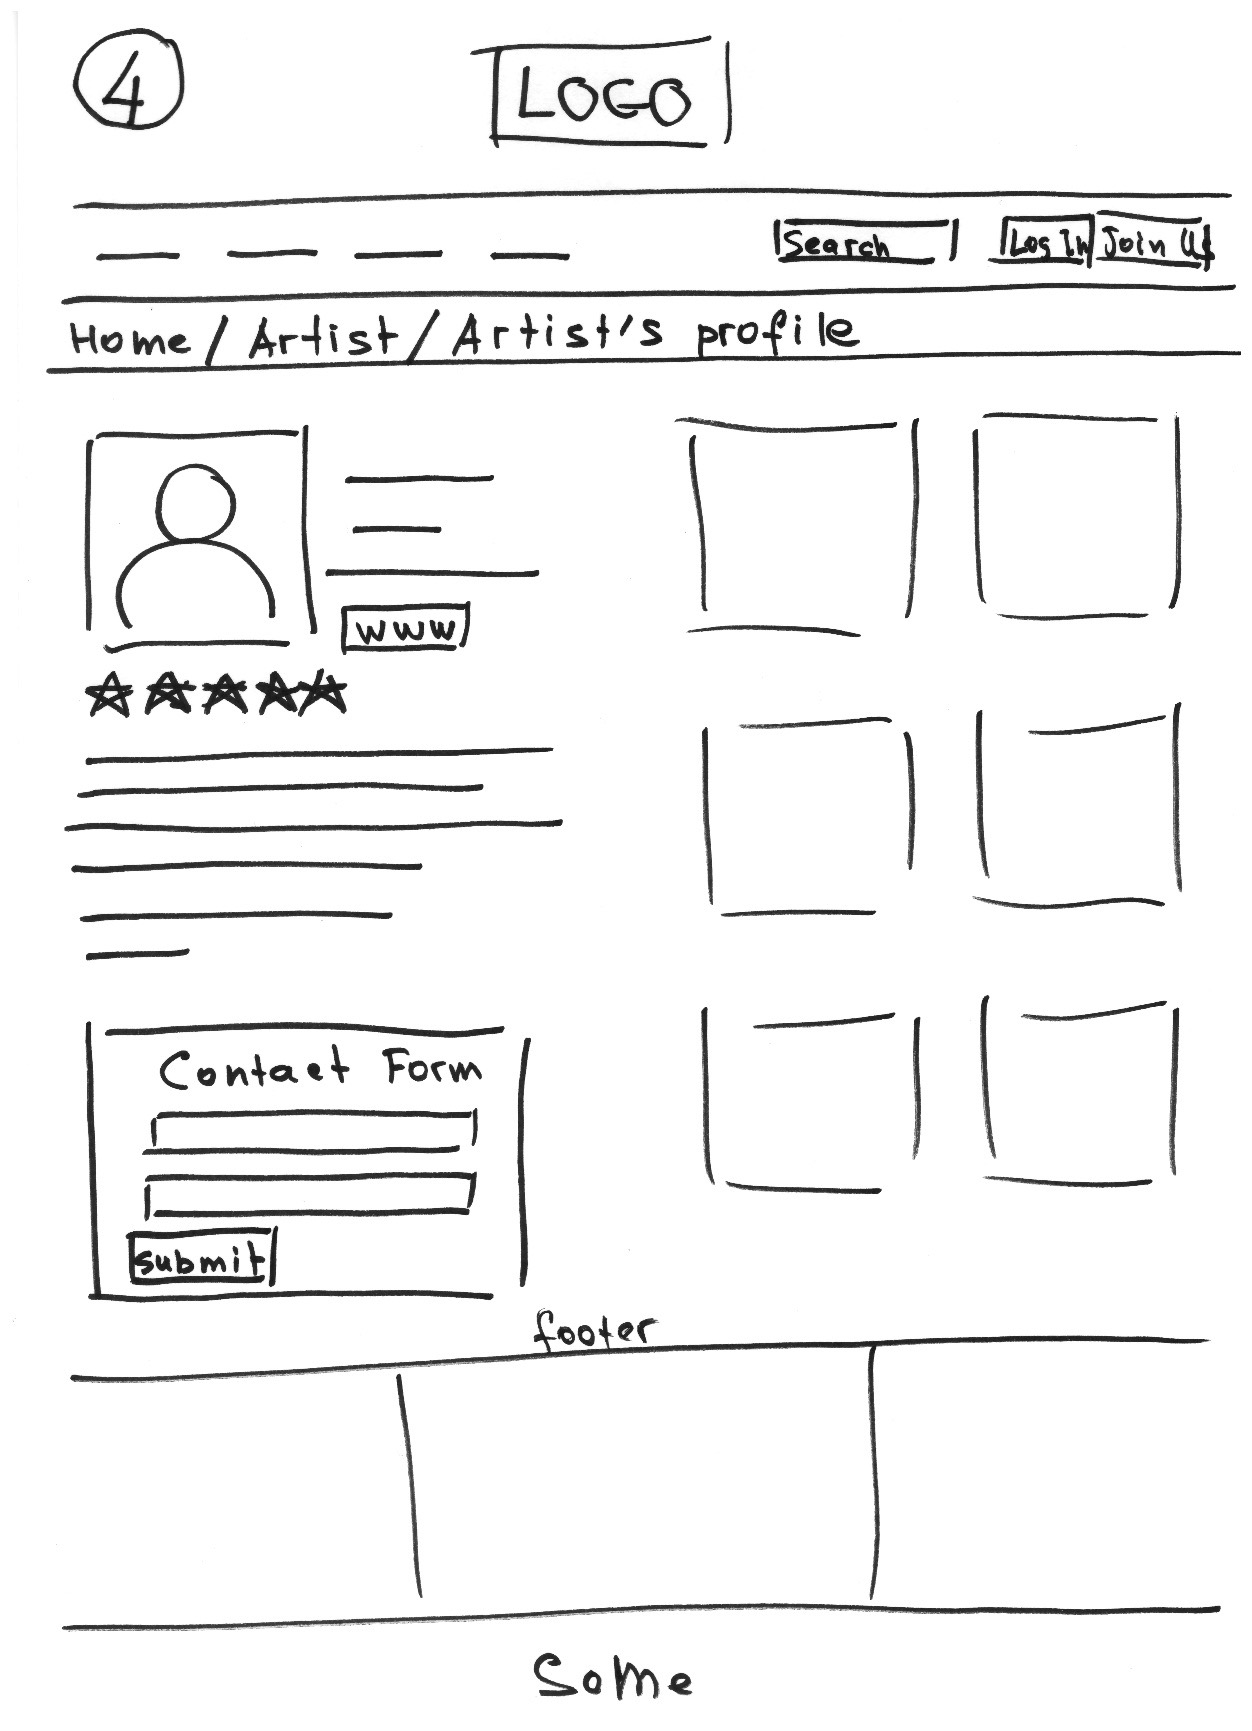 4
LOGO
Search Log In Join Us
Home / Artist / Artist's profile
www
Contact Form
submit
footer
SoMe